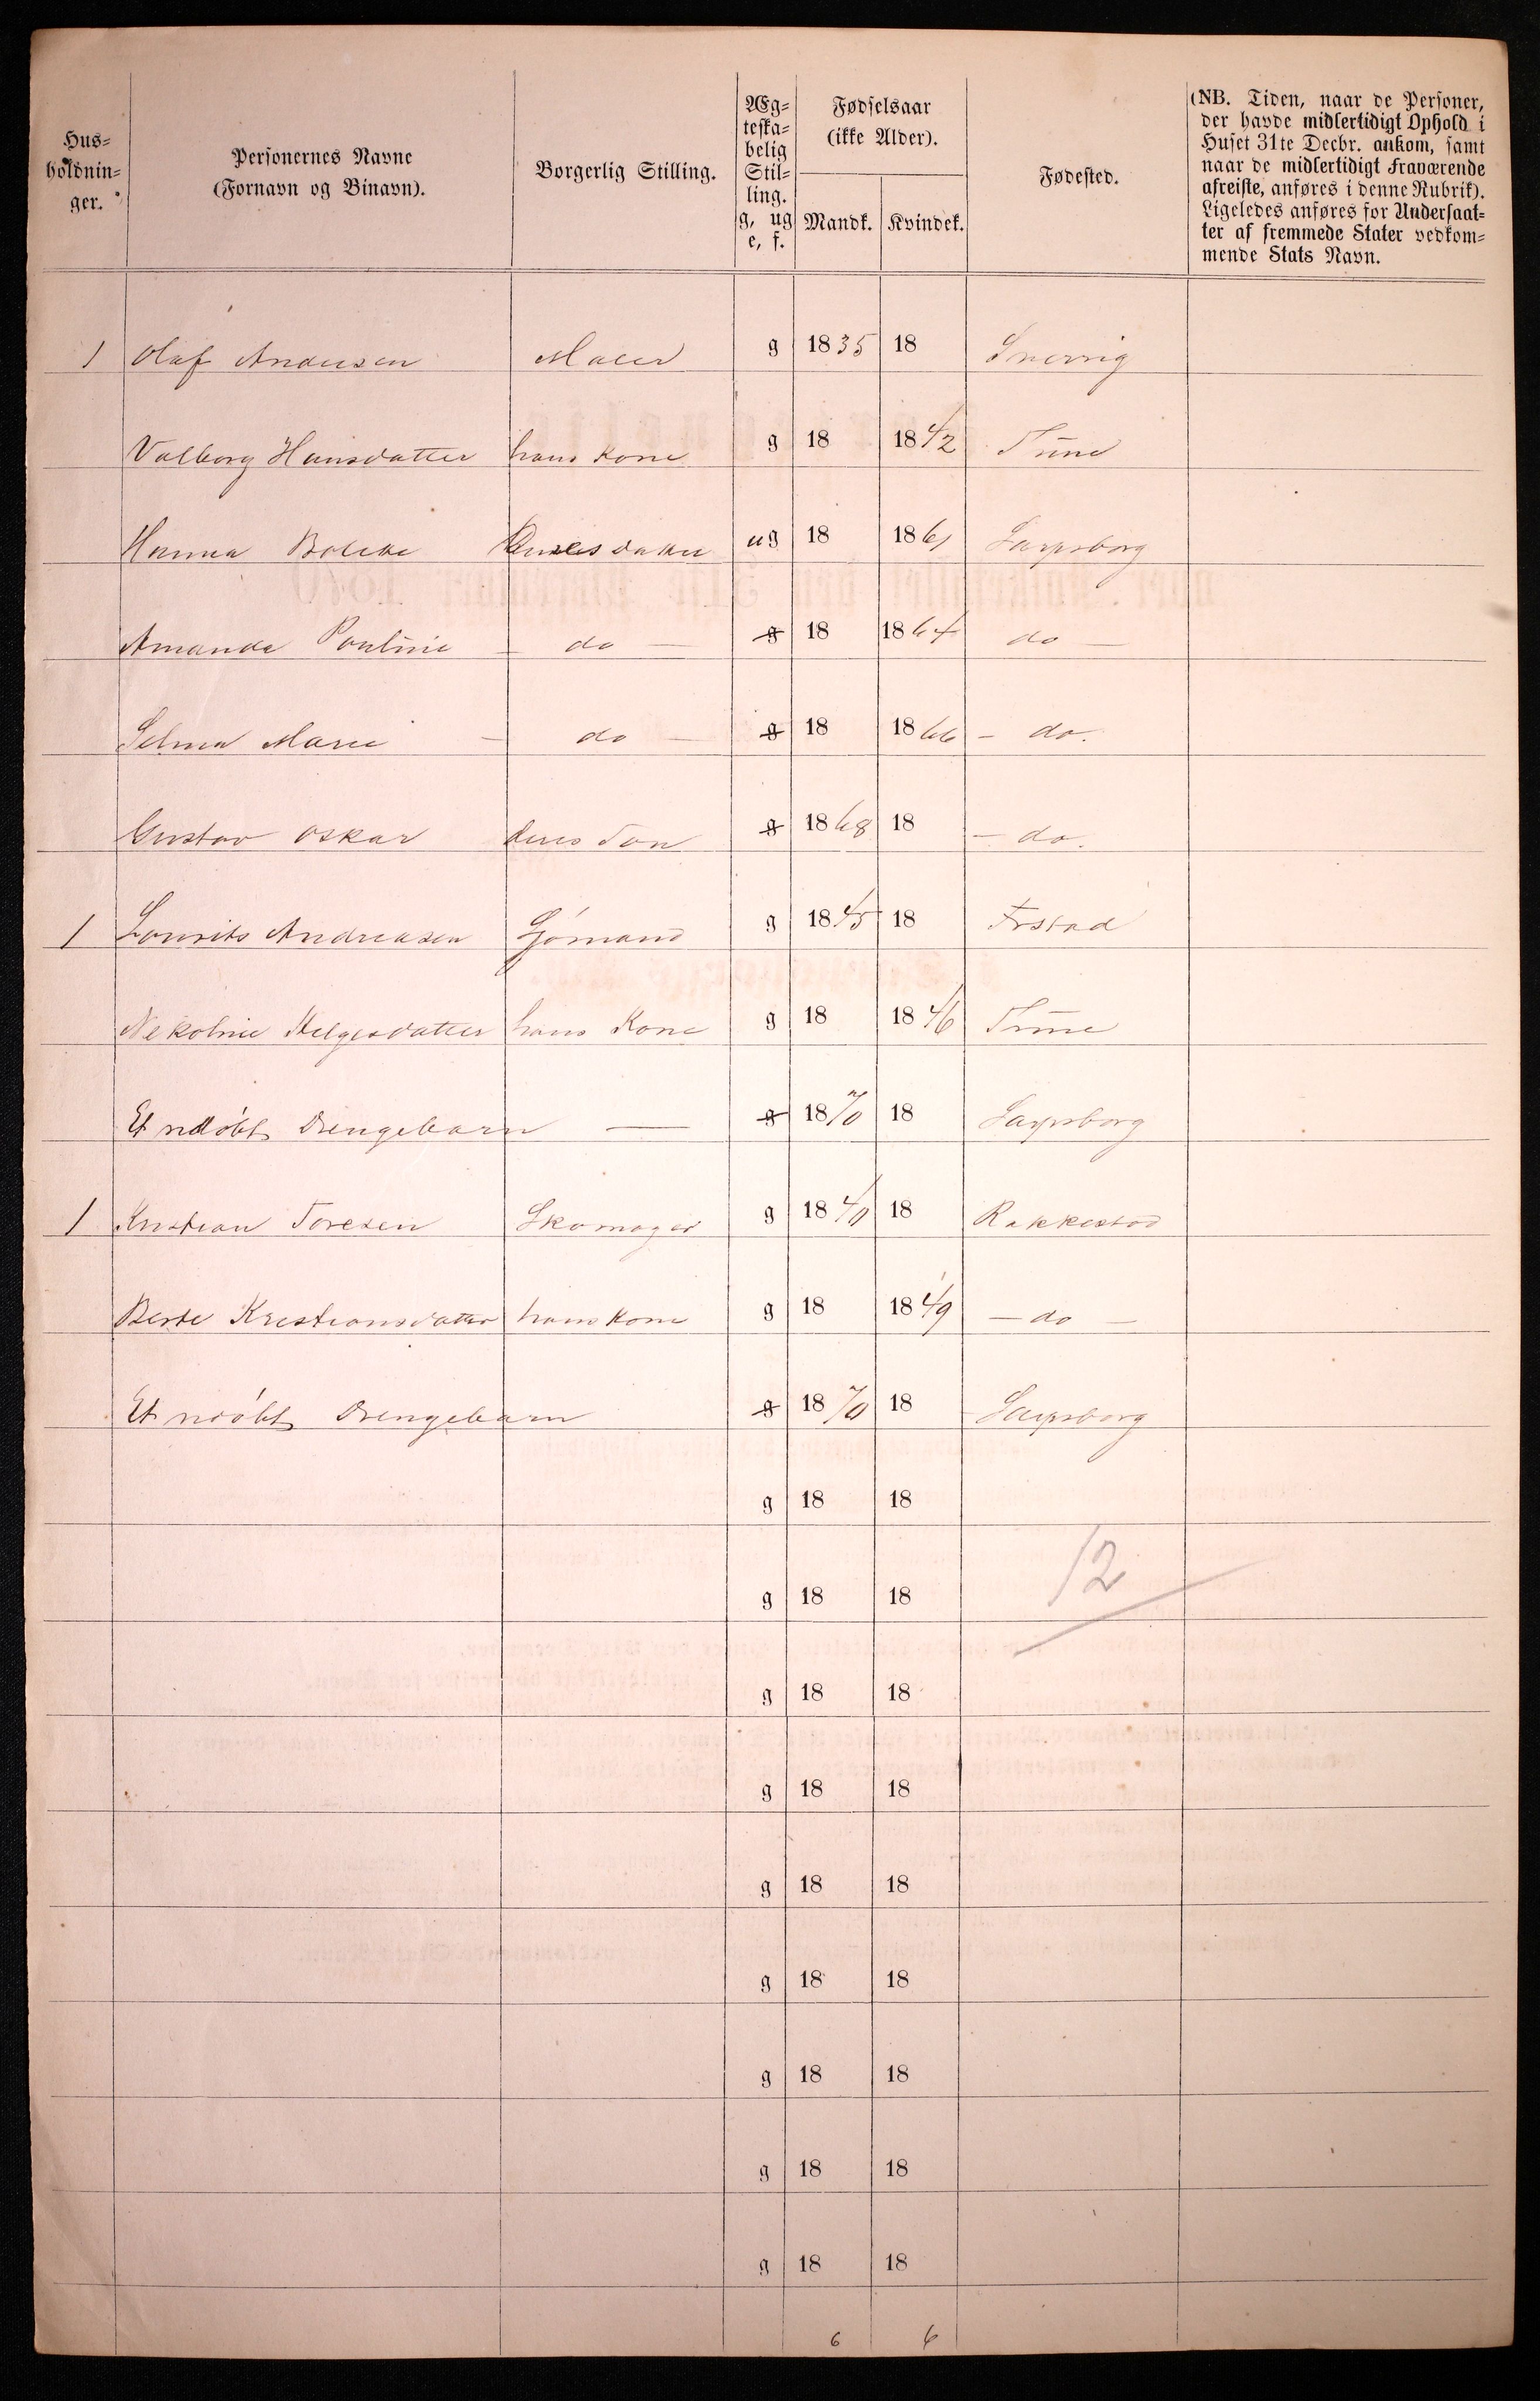 Hus-
holdnin-
ger.
Personernes Navne
(Fornavn og Binavn).
Borgerlig Stilling.
Æg-
teska-
belig
Stil-
ling.
g, ug
e, f.
Fødselsaar
(ikke Alder).
Mandk. Kvindek.
Fødested.
(NB. Tiden, naar de Personer,
der havde midlertidigt Ophold i
Huset 31te Decbr. ankom, samt
naar de midlertidigt fraværende
afreiste, anføres i denne Rubrik).
Ligeledes anføres for Undersaat-
ter af fremmede Stater vedkom-
mende Stats Navn.
1 Olaf Andersen Maler g 1835 18 Sverrig
Valborg Hansdatter hans Kone g 18 1842 Tune
Hanna deres datter ug 18 1861 Sarpsborg
Amanda Pouline - do - g 18 1864 do -
Selma Marie - do - g 18 1866 - do.
Gustav Oskar deres Søn g 1868 18 - do.
1 Lourits Andreasen Sjømand g 1845 18
Nekoline Helgesdatter hans Kone g 18 1846 Tune
Et udøbt Drengebarn - g 1870 18 Sarpsborg
1 Kristian Toresen Skomager g 1840 18 Rakkestad
Berte Kristiansdatter hans Kone g 18 1849 - do -
Et udøbt Drengebarn g 1870 18 Sarpsborg
g 18 18
g 18 18 12
g 18 18
g 18 18
g 18 18
g 18 18
g 18 18
g 18 18
g 18 18
6 6